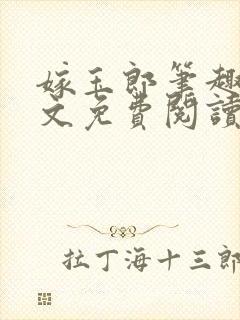 嫁玉郎筆趣
文免費閱讀
拉丁海十三郎